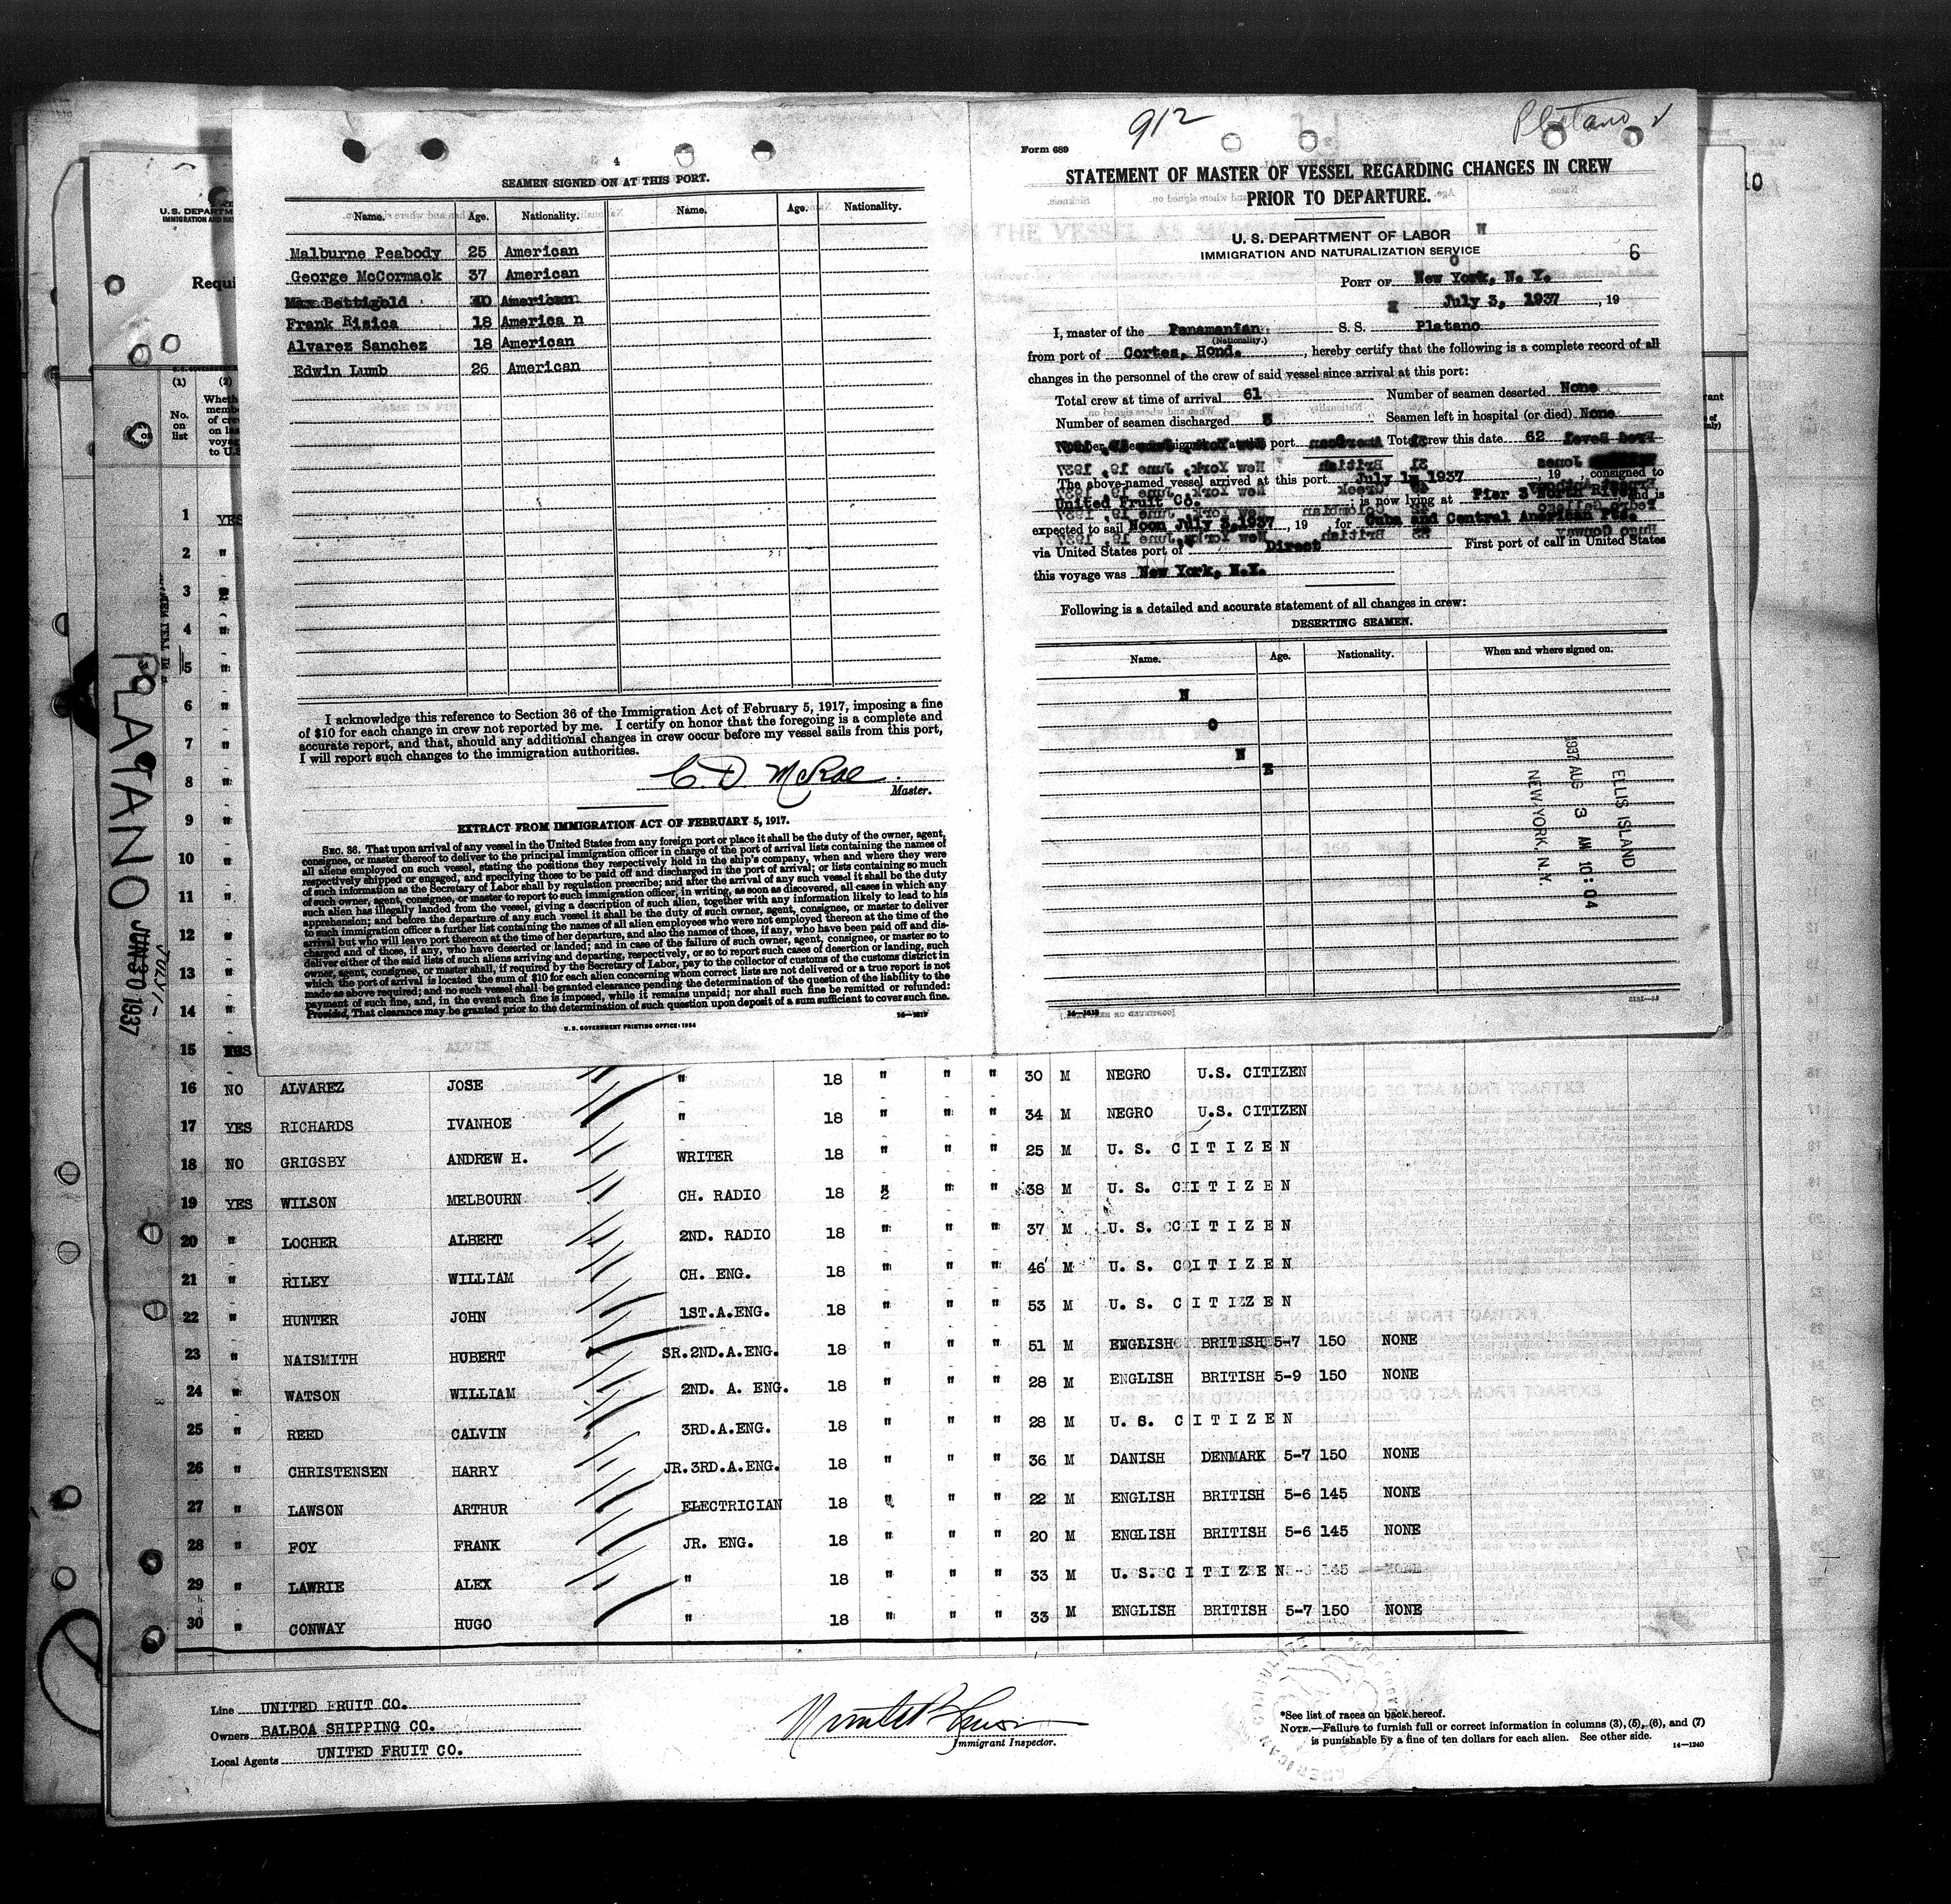 4
SEAMEN SIGNED ON AT THIS PORT.
Name. Age. Nationality. Name. Age. Nationality.
Malburne Peabody 25 American
George McCormack 37 American
Max Bettigold 40 American
Frank Risica 18 America n
Alvarez Sanchez 18 American
Edwin Lumb 26 American
I acknowledge this reference to Section 36 of the Immigration Act of February 5, 1917, imposing a fine
of $10 for each change in crew not reported by me. I certify on honor that the foregoing is a complete and
accurate report, and that, should any additional changes in crew occur before my vessel sails from this port,
I will report such changes to the immigration authorities.
C. D. McRae
Master.
EXTRACT FROM IMMIGRATION ACT OF FEBRUARY 5, 1917.
SEC. 36. That upon arrival of any vessel in the United States from any foreign port or place it shall be the duty of the owner, agent,
consignee, or master thereof to deliver to the principal immigration officer in charge of the port of arrival lists containing the names of
all aliens employed on such vessel, stating the positions they respectively hold in the ship's company, when and where they were
respectively shipped or engaged, and specifying those to be paid off and discharged in the port of arrival; or lists containing so much
of such information as the Secretary of Labor shall by regulation prescribe; and after the arrival of any such vessel it shall be the duty
of such owner, agent, consignee, or master to report to such immigration officer, in writing, as soon as discovered, all cases in which any
such alien has illegally landed from the vessel, giving a description of such alien, together with any information likely to lead to his
apprehension; and before the departure of any such vessel it shall be the duty of such owner, agent, consignee, or master to deliver
to such immigration officer a further list containing the names of all alien employees who were not employed thereon at the time of the
arrival but who will leave port thereon at the time of her departure, and also the names of those, if any, who have been paid off and dis-
charged and of those, if any, who have deserted or landed; and in case of the failure of such owner, agent, consignee, or master so to
deliver either of the said lists of such aliens arriving and departing, respectively, or so to report such cases of desertion or landing, such
owner, agent, consignee, or master shall, if required by the Secretary of Labor, pay to the collector of customs of the customs district in
which the port of arrival is located the sum of $10 for each alien concerning whom correct lists are not delivered or a true report is not
made as above required; and no such vessel shall be granted clearance pending the determination of the question of the liability to the
payment of such fine, and, in the event such fine is imposed, while it remains unpaid; nor shall such fine be remitted or refunded:
Provided, That clearance may be granted prior to the determination of such question upon deposit of a sum sufficient to cover such fine.
U.S. GOVERNMENT PRINTING OFFICE: 1934 14—1619
912
Platano
Form 689
STATEMENT OF MASTER OF VESSEL REGARDING CHANGES IN CREW
PRIOR TO DEPARTURE.
U. S. DEPARTMENT OF LABOR
IMMIGRATION AND NATURALIZATION SERVICE
6
PORT OF New York, N. Y.
July 3, 1937, 19
I, master of the Panamanian S. S. Platano
(Nationality.)
from port of Cortes, Hond., hereby certify that the following is a complete record of all
changes in the personnel of the crew of said vessel since arrival at this port:
Total crew at time of arrival 61 Number of seamen deserted None
Number of seamen discharged Seamen left in hospital (or died) None
port Total crew this date 62
The above-named vessel arrived at this port July 1, 1937 19 consigned to
United Fruit Co. is now lying at Pier 3 North River and is
expected to sail Noon July 3, 1937, 19, for Cuba and Central American Pts.
via United States port of Direct First port of call in United States
this voyage was New York, N.Y.
Following is a detailed and accurate statement of all changes in crew:
DESERTING SEAMEN.
Name. Age. Nationality. When and where signed on.
N
O
N
E
ELLIS ISLAND
1937 AUG 3 AM 10:04
NEW YORK, N.Y.
14—1619
10
U.S. DEPARTM
IMMIGRATION AND NA
Requi
(1) (2)
No. on list
Wheth
memb
of cre
on la
voyag
to U.S
PLATANO
JUN 30 1937
JULY 1-
1 YES
2 "
3
4 "
5 "
6 "
7 "
8 "
9 "
10 "
11 "
12 "
13 "
14 "
15 YES
16 NO ALVAREZ JOSE " 18 " " " 30 M NEGRO U.S. CITIZEN
17 YES RICHARDS IVANHOE " 18 " " " 34 M NEGRO U.S. CITIZEN
18 NO GRIGSBY ANDREW H. WRITER 18 " " " 25 M U. S. C I T I Z E N
19 YES WILSON MELBOURN CH. RADIO 18 " " " 38 M U. S. C I T I Z E N
20 " LOCHER ALBERT 2ND. RADIO 18 " " " 37 M U. S. C I T I Z E N
21 " RILEY WILLIAM CH. ENG. 18 " " " 46 M U. S. C I T I Z E N
22 " HUNTER JOHN 1ST.A.ENG. 18 " " " 53 M U. S. C I T I Z E N
23 " NAISMITH HUBERT SR.2ND.A.ENG. 18 " " " 51 M ENGLISH BRITISH 5-7 150 NONE
24 " WATSON WILLIAM 2ND. A. ENG. 18 " " " 28 M ENGLISH BRITISH 5-9 150 NONE
25 " REED CALVIN 3RD.A.ENG. 18 " " " 28 M U. S. C I T I Z E N
26 " CHRISTENSEN HARRY JR.3RD.A.ENG. 18 " " " 36 M DANISH DENMARK 5-7 150 NONE
27 " LAWSON ARTHUR ELECTRICIAN 18 " " " 22 M ENGLISH BRITISH 5-6 145 NONE
28 " FOY FRANK JR. ENG. 18 " " " 20 M ENGLISH BRITISH 5-6 145 NONE
29 " LAWRIE ALEX " 18 " " " 33 M U. S. C I T I Z E N
30 " CONWAY HUGO " 18 " " " 33 M ENGLISH BRITISH 5-7 150 NONE
Line UNITED FRUIT CO.
Owners BALBOA SHIPPING CO.
Local Agents UNITED FRUIT CO.
Immigrant Inspector.
*See list of races on back hereof.
NOTE.—Failure to furnish full or correct information in columns (3), (5), (6), and (7)
is punishable by a fine of ten dollars for each alien. See other side.
14—1240